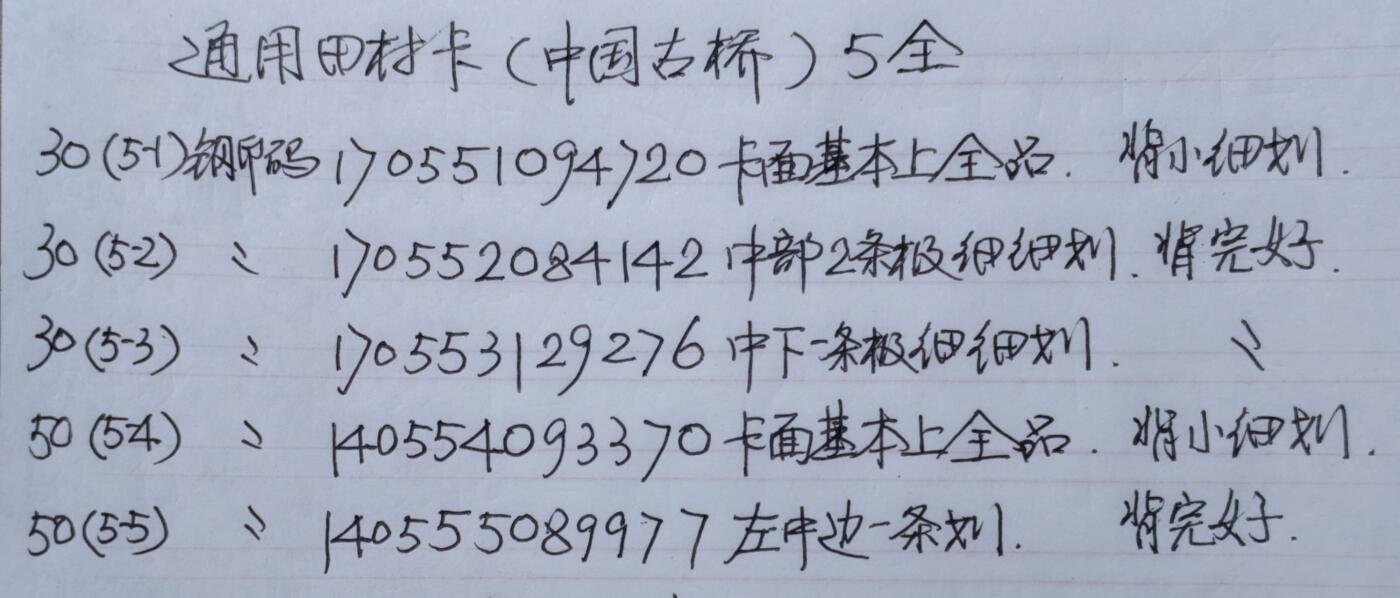 通用田村卡(中国古桥)5全
30(5-1)钢印码170551094720卡面基本上全品.背小细划.
30(5-2) 〃 170552084142中部2条极细细划.背完好.
30(5-3) 〃 170553129276中下一条极细细划. 〃
50(5-4) 〃 140554093370卡面基本上全品.背小细划.
50(5-5) 〃 140555089977左中边一条划.背完好.